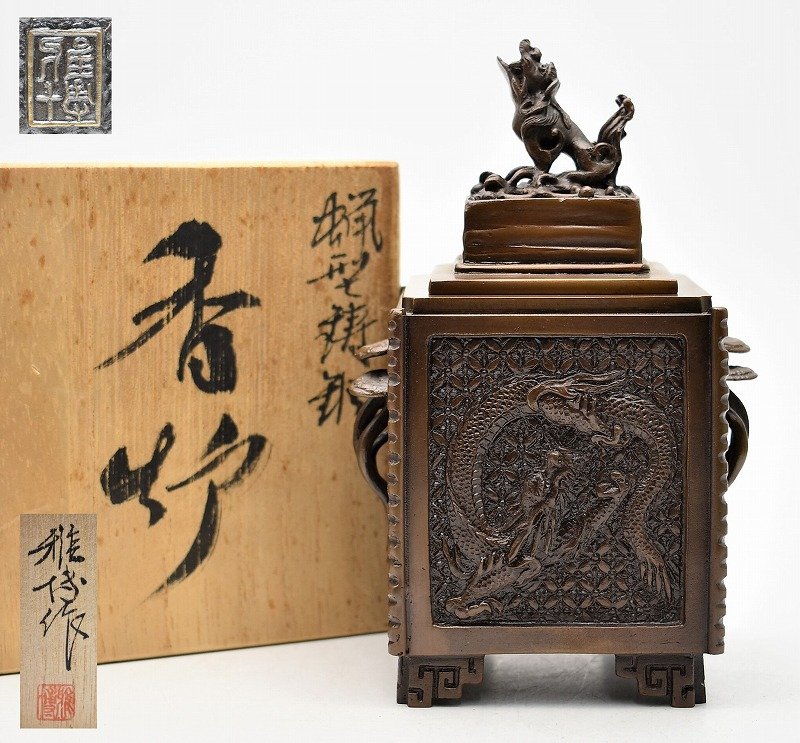 蝋型鋳銅
香炉
雅博作
雅博